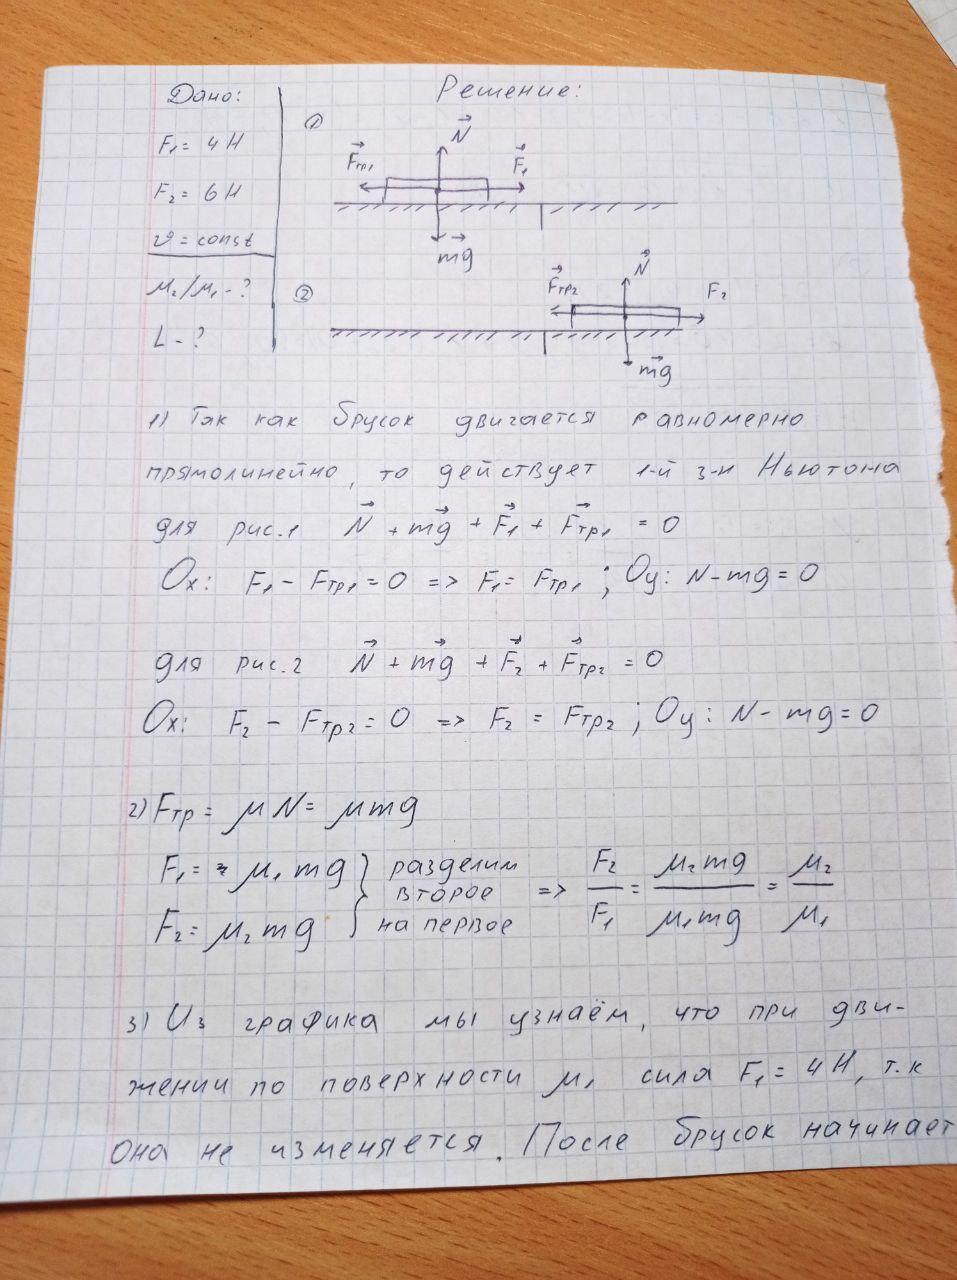 Дано:
F₁ = 4 Н
F₂ = 6 Н
υ = const
μ₂/μ₁ - ?
L - ?
Решение:
①
N
Fтр₁
F₁
mg
②
N
Fтр₂
F₂
mg
1) Так как брусок двигается равномерно
прямолинейно, то действует 1-й з-н Ньютона
для рис.1 N + mg + F₁ + Fтр₁ = 0
Ox: F₁ - Fтр₁ = 0 => F₁ = Fтр₁ ; Oy: N - mg = 0
для рис.2 N + mg + F₂ + Fтр₂ = 0
Ox: F₂ - Fтр₂ = 0 => F₂ = Fтр₂ ; Oy: N - mg = 0
2) Fтр = μN = μmg
F₁ = μ₁mg } разделим
второе
F₂ = μ₂mg на первое
=> F₂/F₁ = μ₂mg/μ₁mg = μ₂/μ₁
3) Из графика мы узнаём, что при дви-
жении по поверхности μ₁ сила F₁ = 4Н, т.к
она не изменяется. После брусок начинает